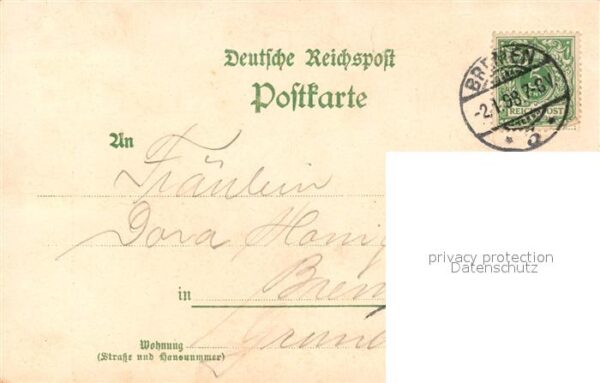 Deutsche Reichspost
Postkarte
BREMEN
-2.1.98.7-8V.
REICHSPOST
* 5 *
An
Fräulein
Dora Honig
in Brem
Wohnung
(Straße und Hausnummer)
privacy protection
Datenschutz